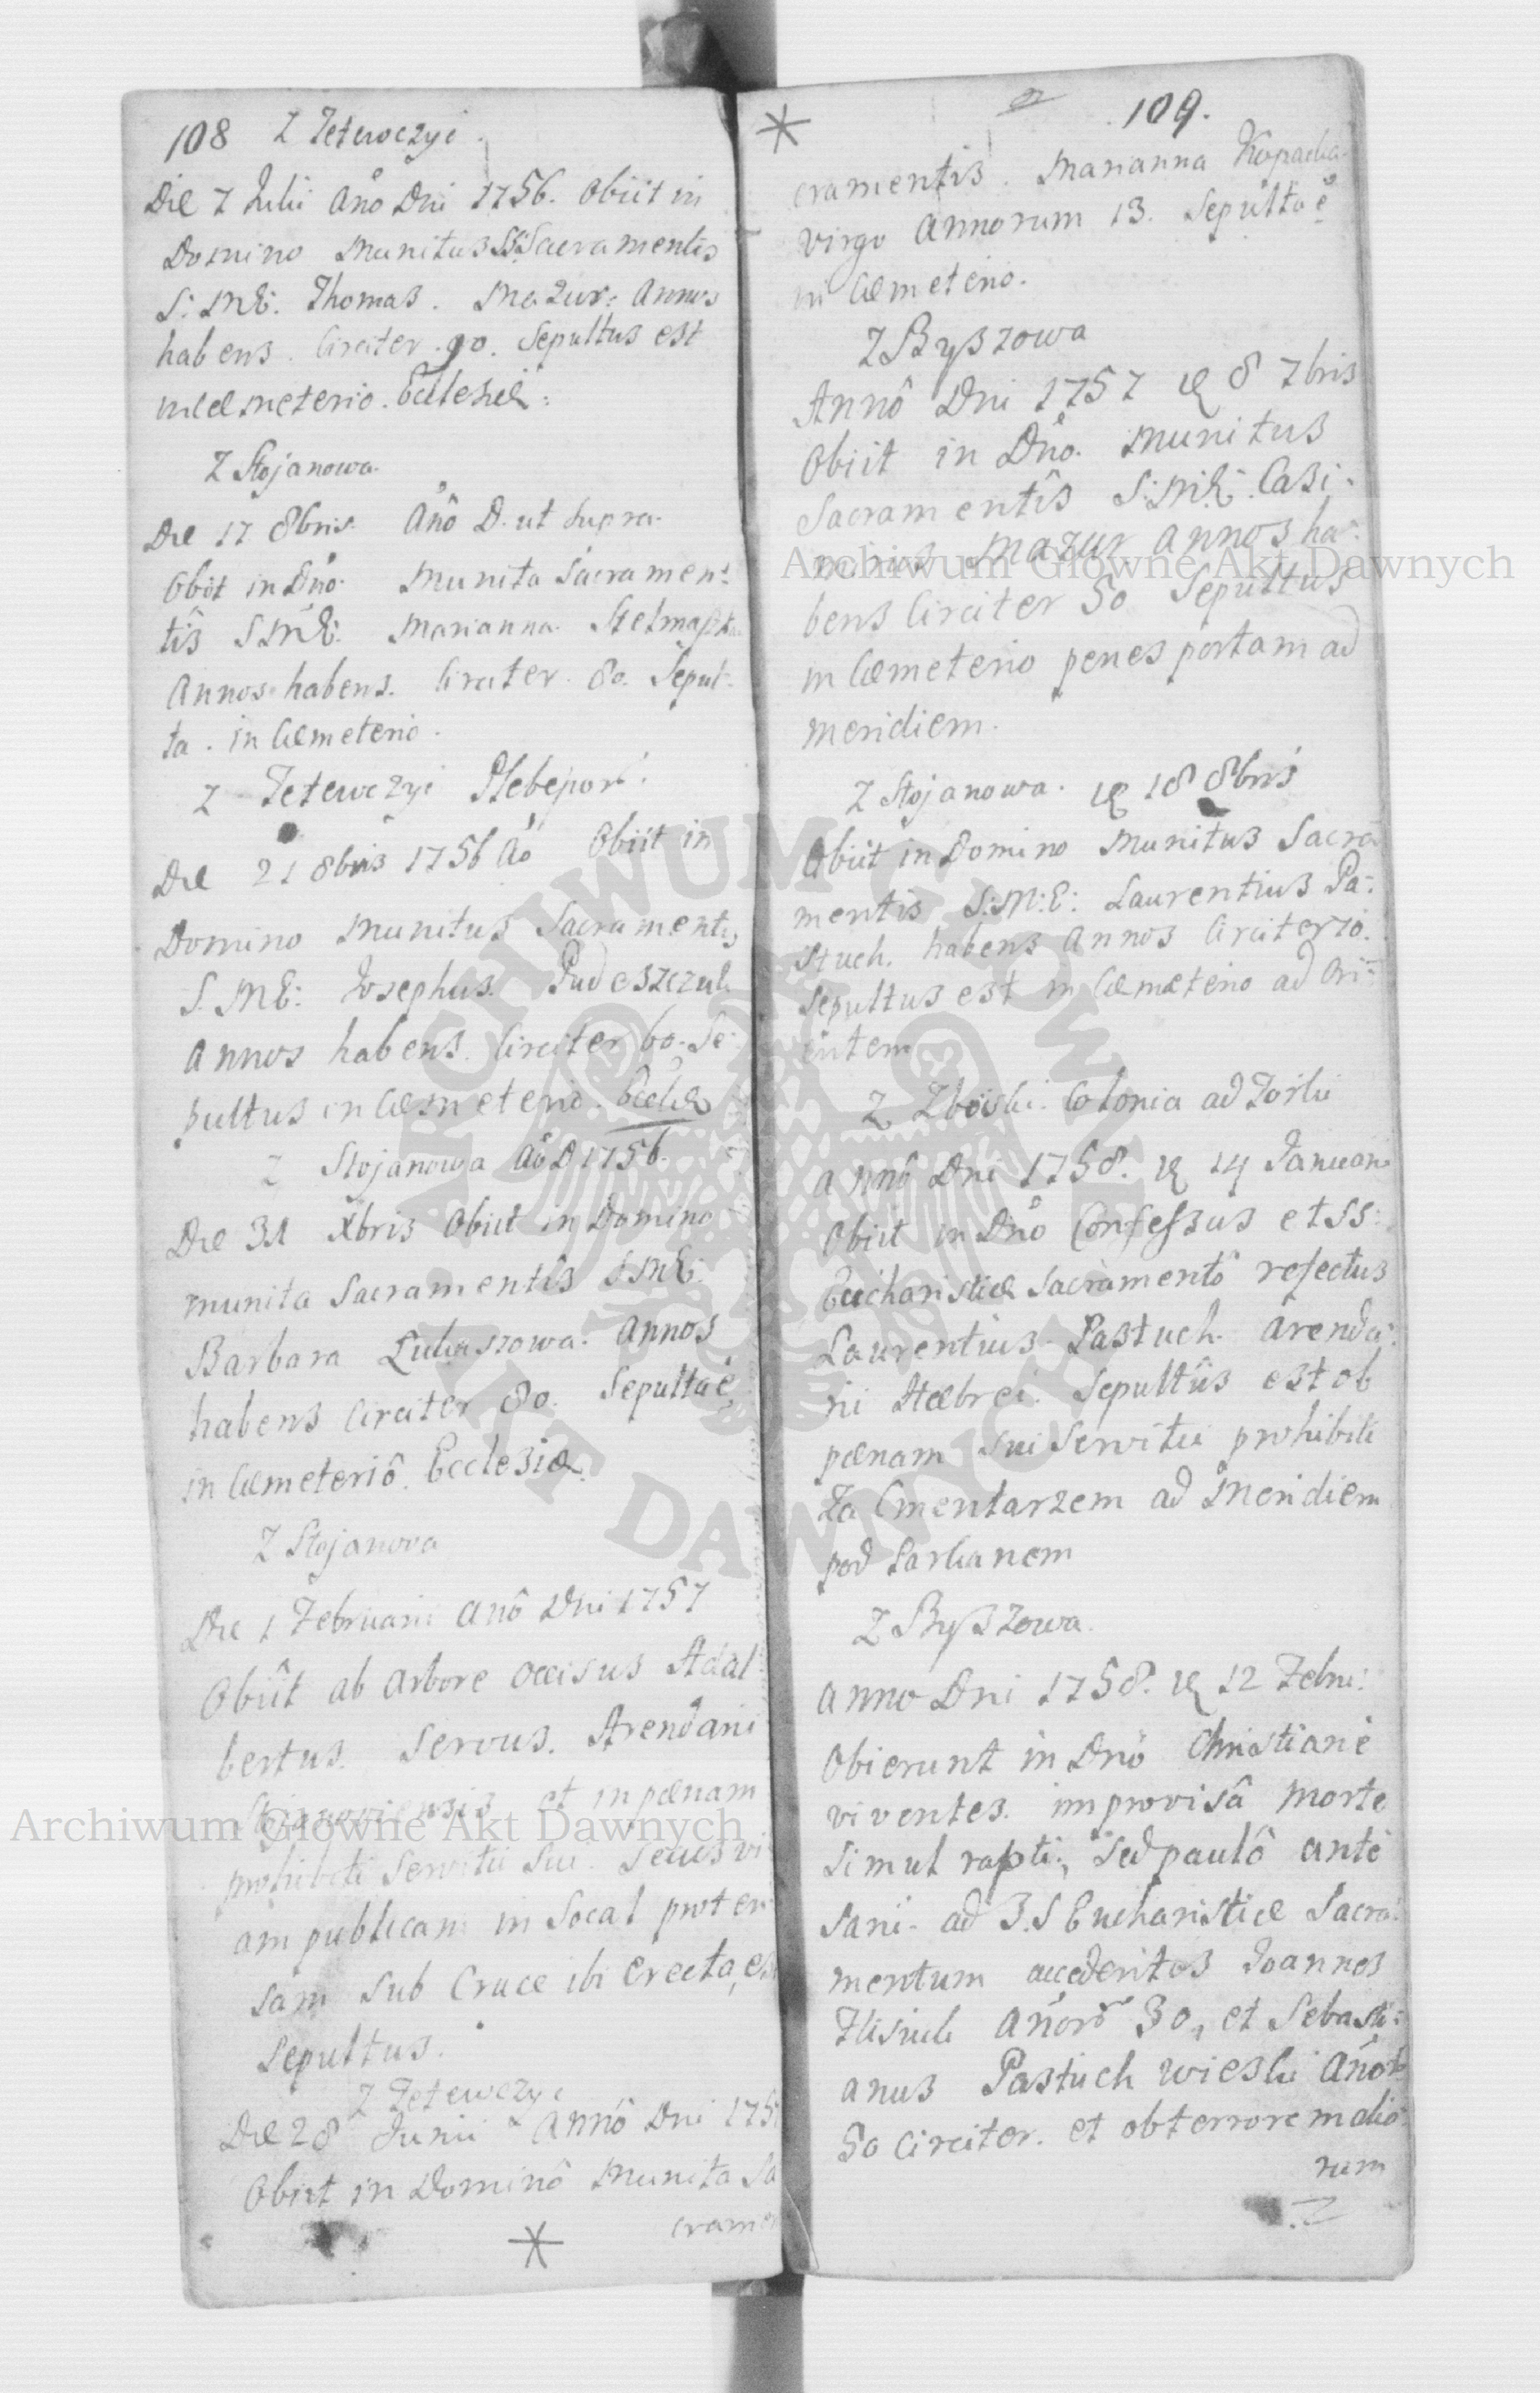 108 Z Tetewczyc.
Die 7 Julii Año Dni 1756. Obiit in
Domino munitus SS: Sacramentis
S: M E: Thomas. Mazur: Annos
habens. Circiter. 90. Sepultus est
in Cæmeterio. Ecclesiæ:
Z Stojanowa.
Die 17 8bris. Añô D. ut supra.
Obiit in Dño. Munita Sacramen:
tis S M E: Marianna. Stelmaszka
Annos habens. Circiter. 80. Sepul:
ta. in Cæmeterio.
Z Tetewczyc
Die 21 8bris 1756 Aô Obiit in
Domino munitus Sacramentis
S. M E: Josephus.
Annos habens. Circiter 60. Se:
pultus in Cæmeterio. Eccliæ
Z Stojanowa Aô D 1756.
Die 31 Xbris Obiit in Domino
munita Sacramentîs S M E:
Barbara Lukaszowa. Annos
habens Circiter 80. Sepulta ê
in Cæmeteriô. Ecclesiæ.
Z Stojanowa
Die 1 Februarii Anô Dni 1757
Obiit ab arbore occisus Adal:
bertus. Servus. Arendarii
Stojanoviensis et in pænam
prohibiti Servitii Sui. Secus vi
am publicam in Socal proten
sam sub Cruce ibi erecta, est
Sepultus.
Z Tetewczyc
Die 28 Junii Annô Dni 175
Obiit in Dominô munita Sa
cramen
*
* 109.
cramentis. Marianna Kopacka
virgo Annorum 13. Sepulta ê
in Cæmeterio.
Z Byszowa
Annô Dni 1757 8 7bris
Obiit in Dño. munitus
Sacramentîs S: M E: Casi:
mirus Mazur Annos ha:
bens Circiter 50 Sepultus
in Cæmeterio penes portam ad
meridiem.
Z Stojanowa. 18 8bris
Obiit in Domino munitus Sacra
mentis S: M: E: Laurentius Pa:
stuch. habens Annos Circiter 70.
Sepultus est in Cæmeterio ad Ori:
entem
Z Zboiski. Colonia ad Torki
Annô Dni 1758. 14 Januarii
Obiit in Dño Confessus et SS:
Eucharistiæ Sacramentô refectus
Laurentius Pastuch. Arenda:
rii Hæbrei. Sepultus est ob
pænam sui Servitii prohibiti
Za Cmentarzem ad Meridiem
pod Parkanem
Z Byszowa.
Anno Dni 1758. 12 Febru:
Obierunt in Dnô Christianè
viventes. improvisâ morte
simul rapti; sed paulô antè
sani ad S. S Eucharistiæ Sacra:
mentum accedentes Joannes
Añor 30, et Sebasti:
anus Pastuch wieski Añor
50 Circiter. et ob terrorem alio:
rum
Archiwum Główne Akt Dawnych
Archiwum Główne Akt Dawnych
ARCHIWUM GŁÓWNE AKT DAWNYCH